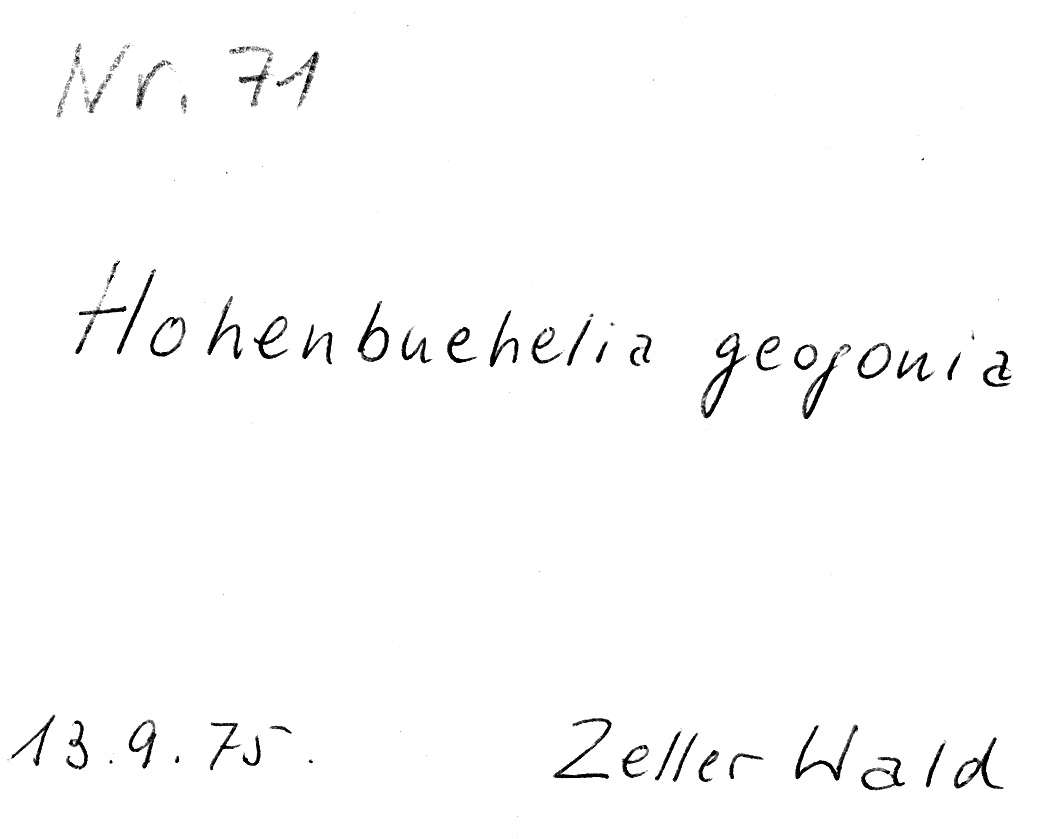 Nr. 71
Hohenbuehelia geogonia
13.9.75. Zeller Wald